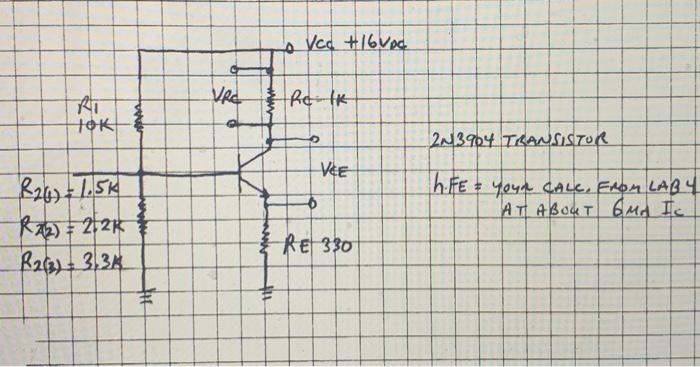 VCC +16VDC
R1
10K
VRC
RC = 1K
2N3904 TRANSISTOR
VCE
hFE = YOUR CALC. FROM LAB 4
AT ABOUT 6MA IC
R2(1) = 1.5K
R2(2) = 2.2K
R2(3) = 3.3K
RE 330